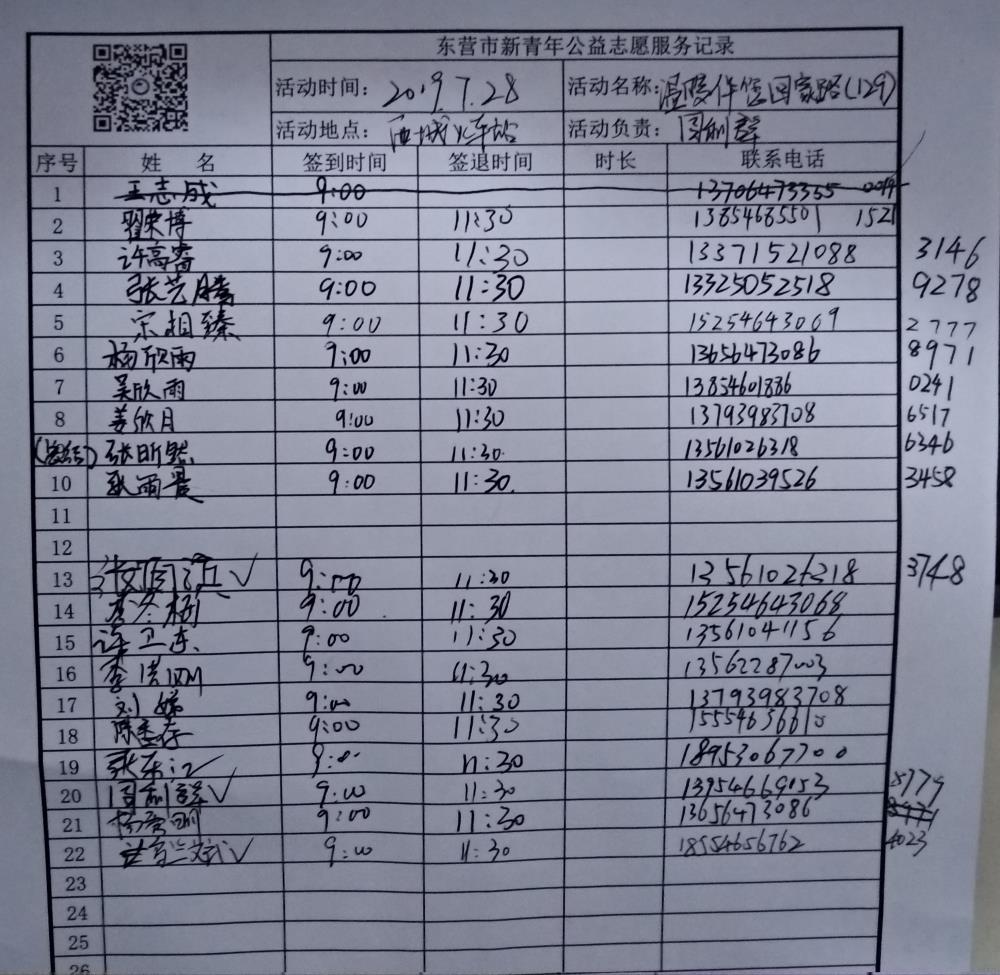 东营市新青年公益志愿服务记录
活动时间: 2019.7.28 活动名称: 温暖伴您回家路(129)
活动地点: 西城火车站 活动负责: 周利群
序号 姓名 签到时间 签退时间 时长 联系电话
1 王志成 9:00 13706473355
2 翟荣博 9:00 11:30 13854685501 1521
3 许高睿 9:00 11:30 13371521088 3146
4 张艺腾 9:00 11:30 13325052518 9278
5 宋相臻 9:00 11:30 15254643069 2777
6 杨欣雨 9:00 11:30 13656473086 8971
7 吴欣雨 9:00 11:30 13854601886 0241
8 姜欣月 9:00 11:30 13793983708 6517
(总结) 张昕然 9:00 11:30 13561026318 6346
10 耿雨曼 9:00 11:30. 13561039526 3458
11
12
13 ✓ 9:00 11:30 13561026318 3748
14 李冬梅 9:00 11:30 15254643068
15 许卫东 9:00 11:30 13561041156
16 李洪刚 9:00 11:30 13562287003
17 刘娣 9:00 11:30 13793983708
18 9:00 11:30 15554636610
19 张东江 9:00 11:30 18953067700
20 周利群 ✓ 9:00 11:30 13954669053 5779
21 9:00 11:30 13656473086 8971
22 ✓ 9:00 11:30 18554656762 4023
23
24
25
26